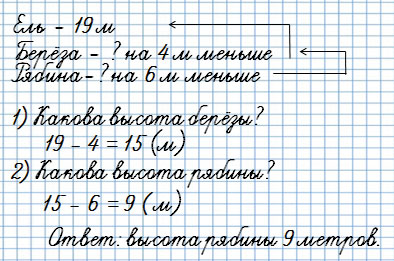 Ель - 19 м
Берёза - ? на 4 м меньше
Рябина - ? на 6 м меньше
1) Какова высота берёзы?
19 - 4 = 15 (м)
2) Какова высота рябины?
15 - 6 = 9 (м)
Ответ: высота рябины 9 метров.